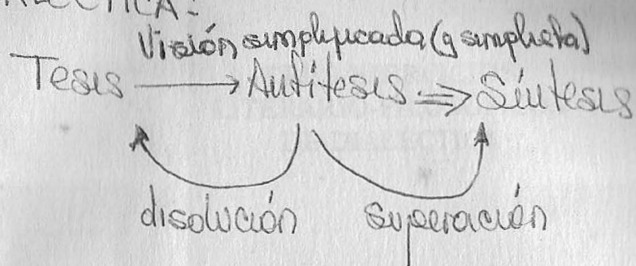 Visión simplificada (y simplista)
Tesis → Antítesis ⇒ Síntesis
disolución superación